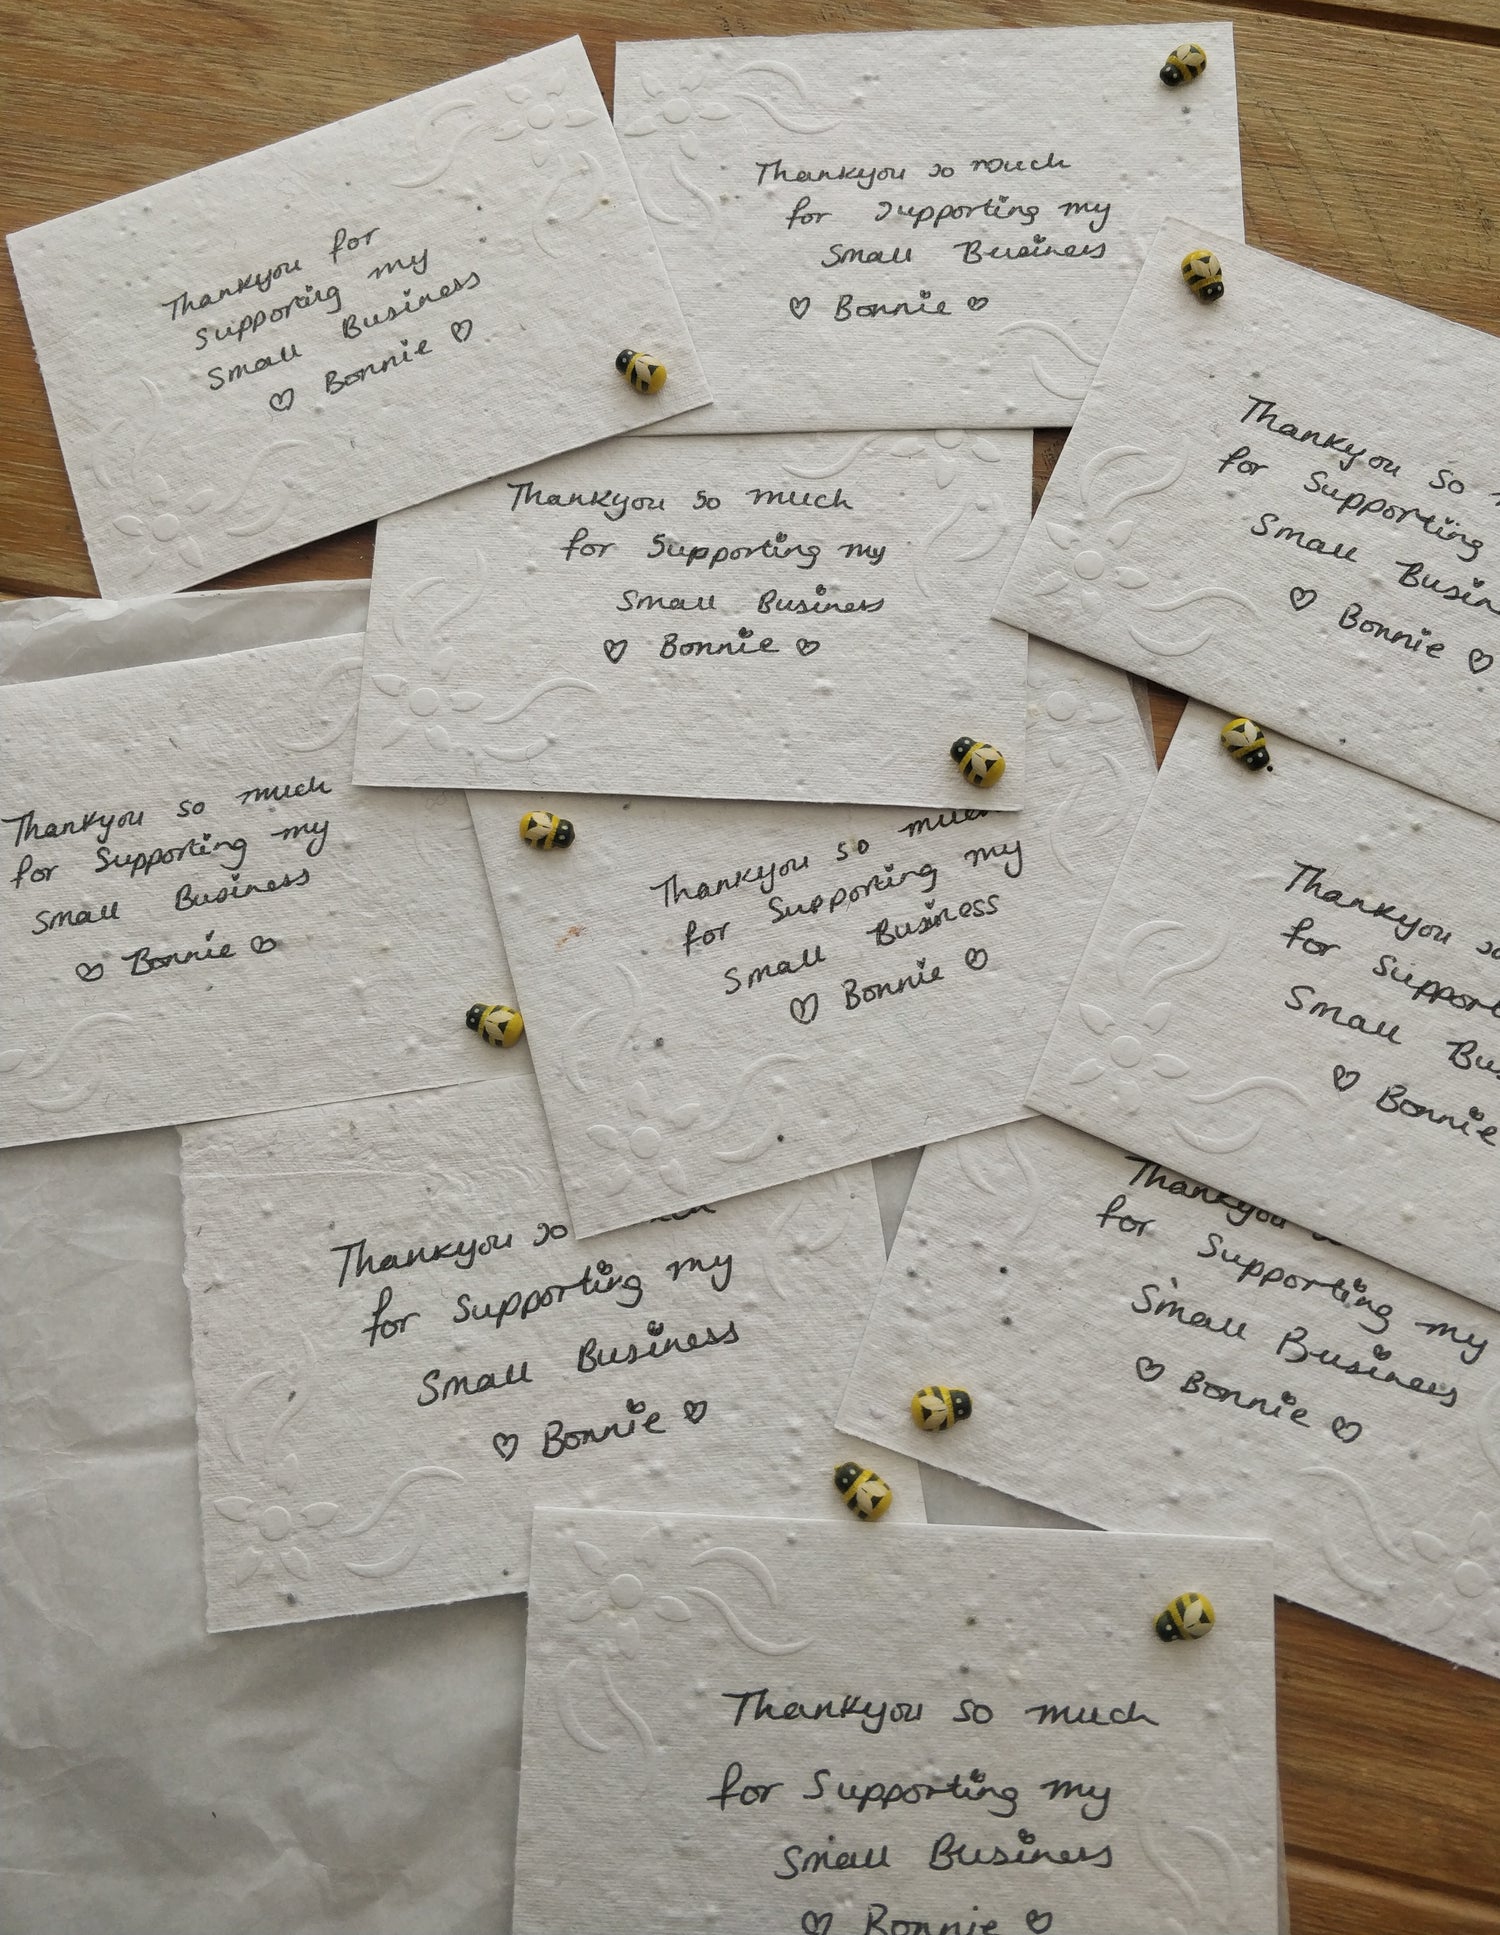 Thankyou for
Supporting my
Small Business
♡ Bonnie ♡
Thankyou so much
for Supporting my
Small Business
♡ Bonnie ♡
Thankyou so
for Supporting
Small Busin
♡ Bonnie ♡
Thankyou so much
for Supporting my
Small Business
♡ Bonnie ♡
Thankyou so much
for Supporting my
Small Business
♡ Bonnie ♡
Thankyou so much
for Supporting my
Small Business
♡ Bonnie ♡
Thankyou so
for Support
Small Bus
♡ Bonnie
Thankyou so
for Supporting my
Small Business
♡ Bonnie ♡
Thankyou
for Supporting my
Small Business
♡ Bonnie ♡
Thankyou so much
for Supporting my
Small Business
♡ Bonnie ♡